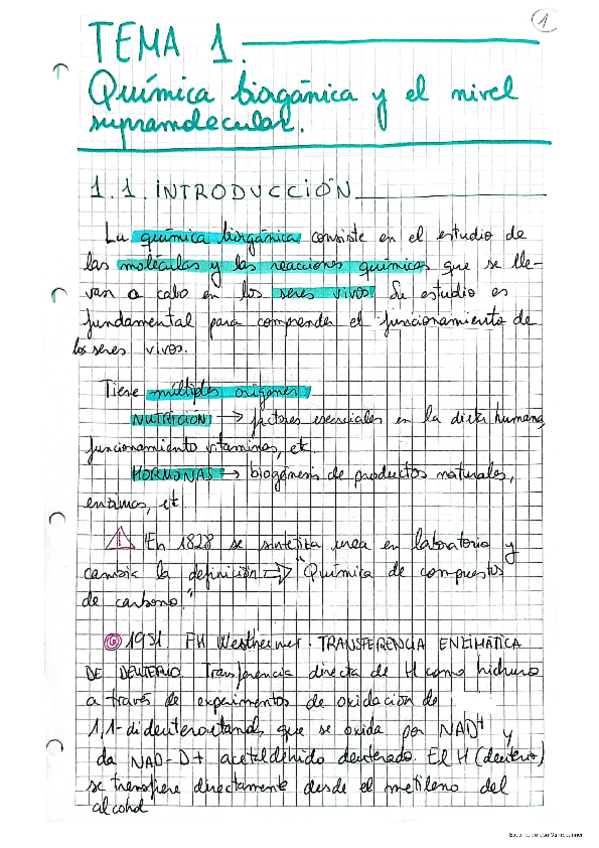 1
TEMA 1.
Química biorgánica y el nivel
supramolecular.
1.1. INTRODUCCIÓN
La química biorgánica consiste en el estudio de
las moléculas y las reacciones químicas que se lle-
van a cabo en los seres vivos. Su estudio es
fundamental para comprender el funcionamiento de
los seres vivos.
Tiene múltiples orígenes
NUTRICIÓN → factores esenciales en la dieta humana,
funcionamiento vitaminas, etc.
HORMONAS → biogénesis de productos naturales,
enzimas, etc
En 1828 se sintetiza urea en laboratorio y
cambia la definición ⇒ "Química de compuestos
de carbono."
1951 FH Westheimer. TRANSFERENCIA ENZIMÁTICA
DE DEUTERIO. Transferencia directa de H como hidruro
a través de experimentos de oxidación de
1,1-dideuteroetanol, que se oxida por NAD+ y
da NAD-D + acetaldehído deuterado. El H (deuterio)
se transfiere directamente desde el metileno del
alcohol